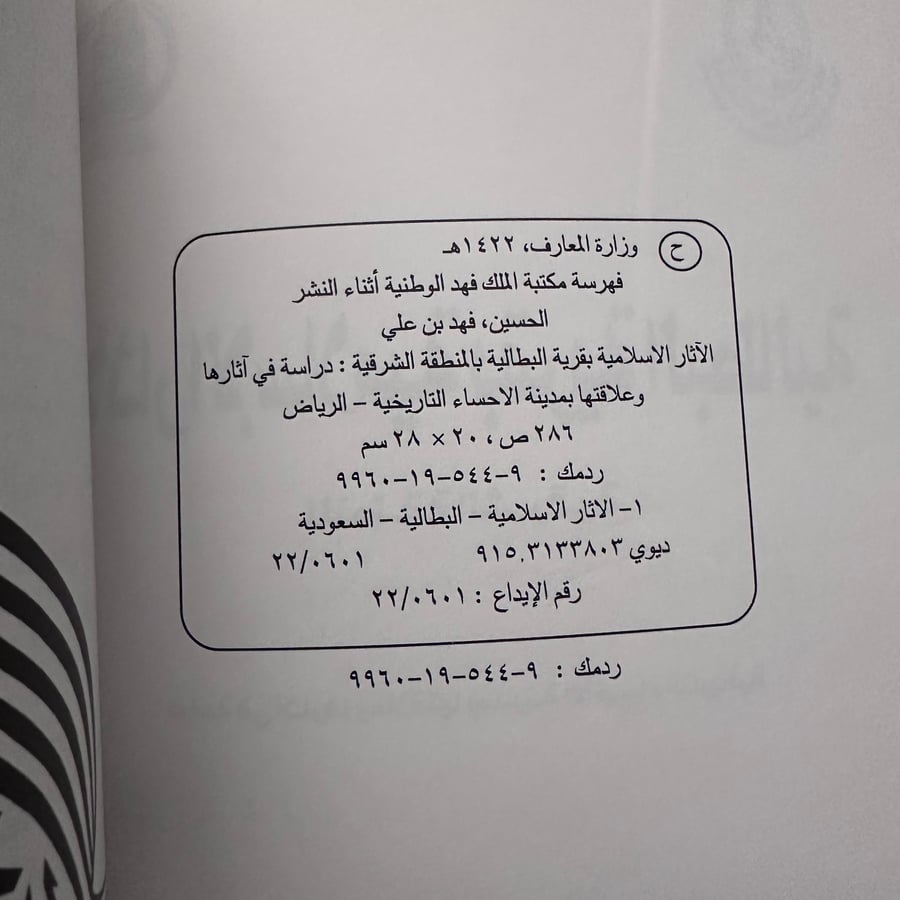 ح وزارة المعارف، ١٤٢٢هـ
فهرسة مكتبة الملك فهد الوطنية أثناء النشر
الحسين، فهد بن علي
الآثار الاسلامية بقرية البطالية بالمنطقة الشرقية : دراسة في آثارها
وعلاقتها بمدينة الاحساء التاريخية – الرياض
٢٨٦ ص ، ٢٠ × ٢٨ سم
ردمك : ٩–٥٤٤–١٩–٩٩٦٠
١– الاثار الاسلامية – البطالية – السعودية
ديوي ٩١٥,٣١٣٣٨٠٣ ٢٢/٠٦٠١
رقم الإيداع : ٢٢/٠٦٠١
ردمك : ٩–٥٤٤–١٩–٩٩٦٠